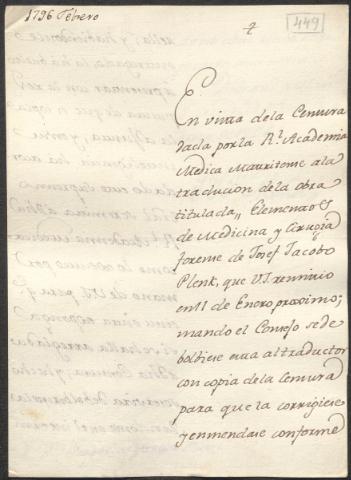 1796 Febrero
449
En vista dela Censura
dada por la Rl. Academia
Medica Matritense ala
traducion de la obra
titulada,, Elementos
de Medicina y Cirugia
forense de Josef Jacobo
Plenk, que VI remitio
en 11 de Enero proximo;
mando el Consejo se de
bolbiese esta al traductor
con copia dela Censura
para que la corrigiese
y enmendase conforme